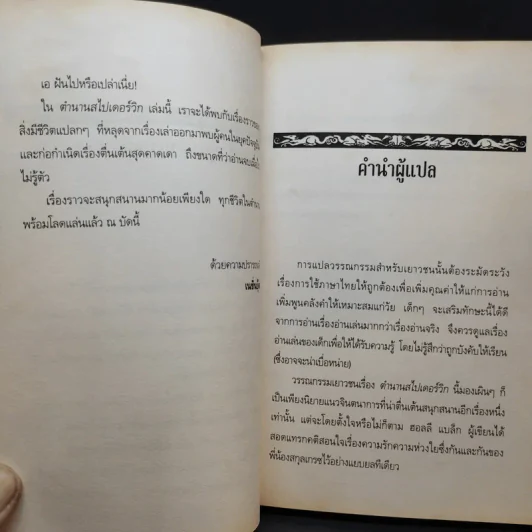 เอ ฝันไปหรือเปล่าเนี่ย!
ใน ตำนานสไปเดอร์วิก เล่มนี้ เราจะได้พบกับเรื่องราวของ
สิ่งมีชีวิตแปลกๆ ที่หลุดจากเรื่องเล่าออกมาพบผู้คนในยุคปัจจุบัน
และก่อกำเนิดเรื่องตื่นเต้นสุดคาดเดา ถึงขนาดที่ว่าอ่านจบเมื่อไร
ไม่รู้ตัว
เรื่องราวจะสนุกสนานมากน้อยเพียงใด ทุกชีวิตใน
พร้อมโลดแล่นแล้ว ณ บัดนี้
ด้วยความปรารถนา
คำนำผู้แปล
การแปลวรรณกรรมสำหรับเยาวชนนั้นต้องระมัดระวัง
เรื่องการใช้ภาษาไทยให้ถูกต้องเพื่อเพิ่มคุณค่าให้แก่การอ่าน
เพิ่มพูนคลังคำให้เหมาะสมแก่วัย เด็กๆ จะเสริมทักษะนี้ได้ดี
จากการอ่านเรื่องอ่านเล่นมากกว่าเรื่องอ่านจริง จึงควรดูแลเรื่อง
อ่านเล่นของเด็กเพื่อให้ได้รับความรู้ โดยไม่รู้สึกว่าถูกบังคับให้เรียน
(ซึ่งอาจจะน่าเบื่อหน่าย)
วรรณกรรมเยาวชนเรื่อง ตำนานสไปเดอร์วิก นี้มองเผินๆ ก็
เป็นเพียงนิยายแนวจินตนาการที่น่าตื่นเต้นสนุกสนานอีกเรื่องหนึ่ง
เท่านั้น แต่จะโดยตั้งใจหรือไม่ก็ตาม ฮอลลี แบล็ก ผู้เขียนได้
สอดแทรกคติสอนใจเรื่องความรักความห่วงใยซึ่งกันและกันของ
พี่น้องสกุลเกรซไว้อย่างแยบยลทีเดียว